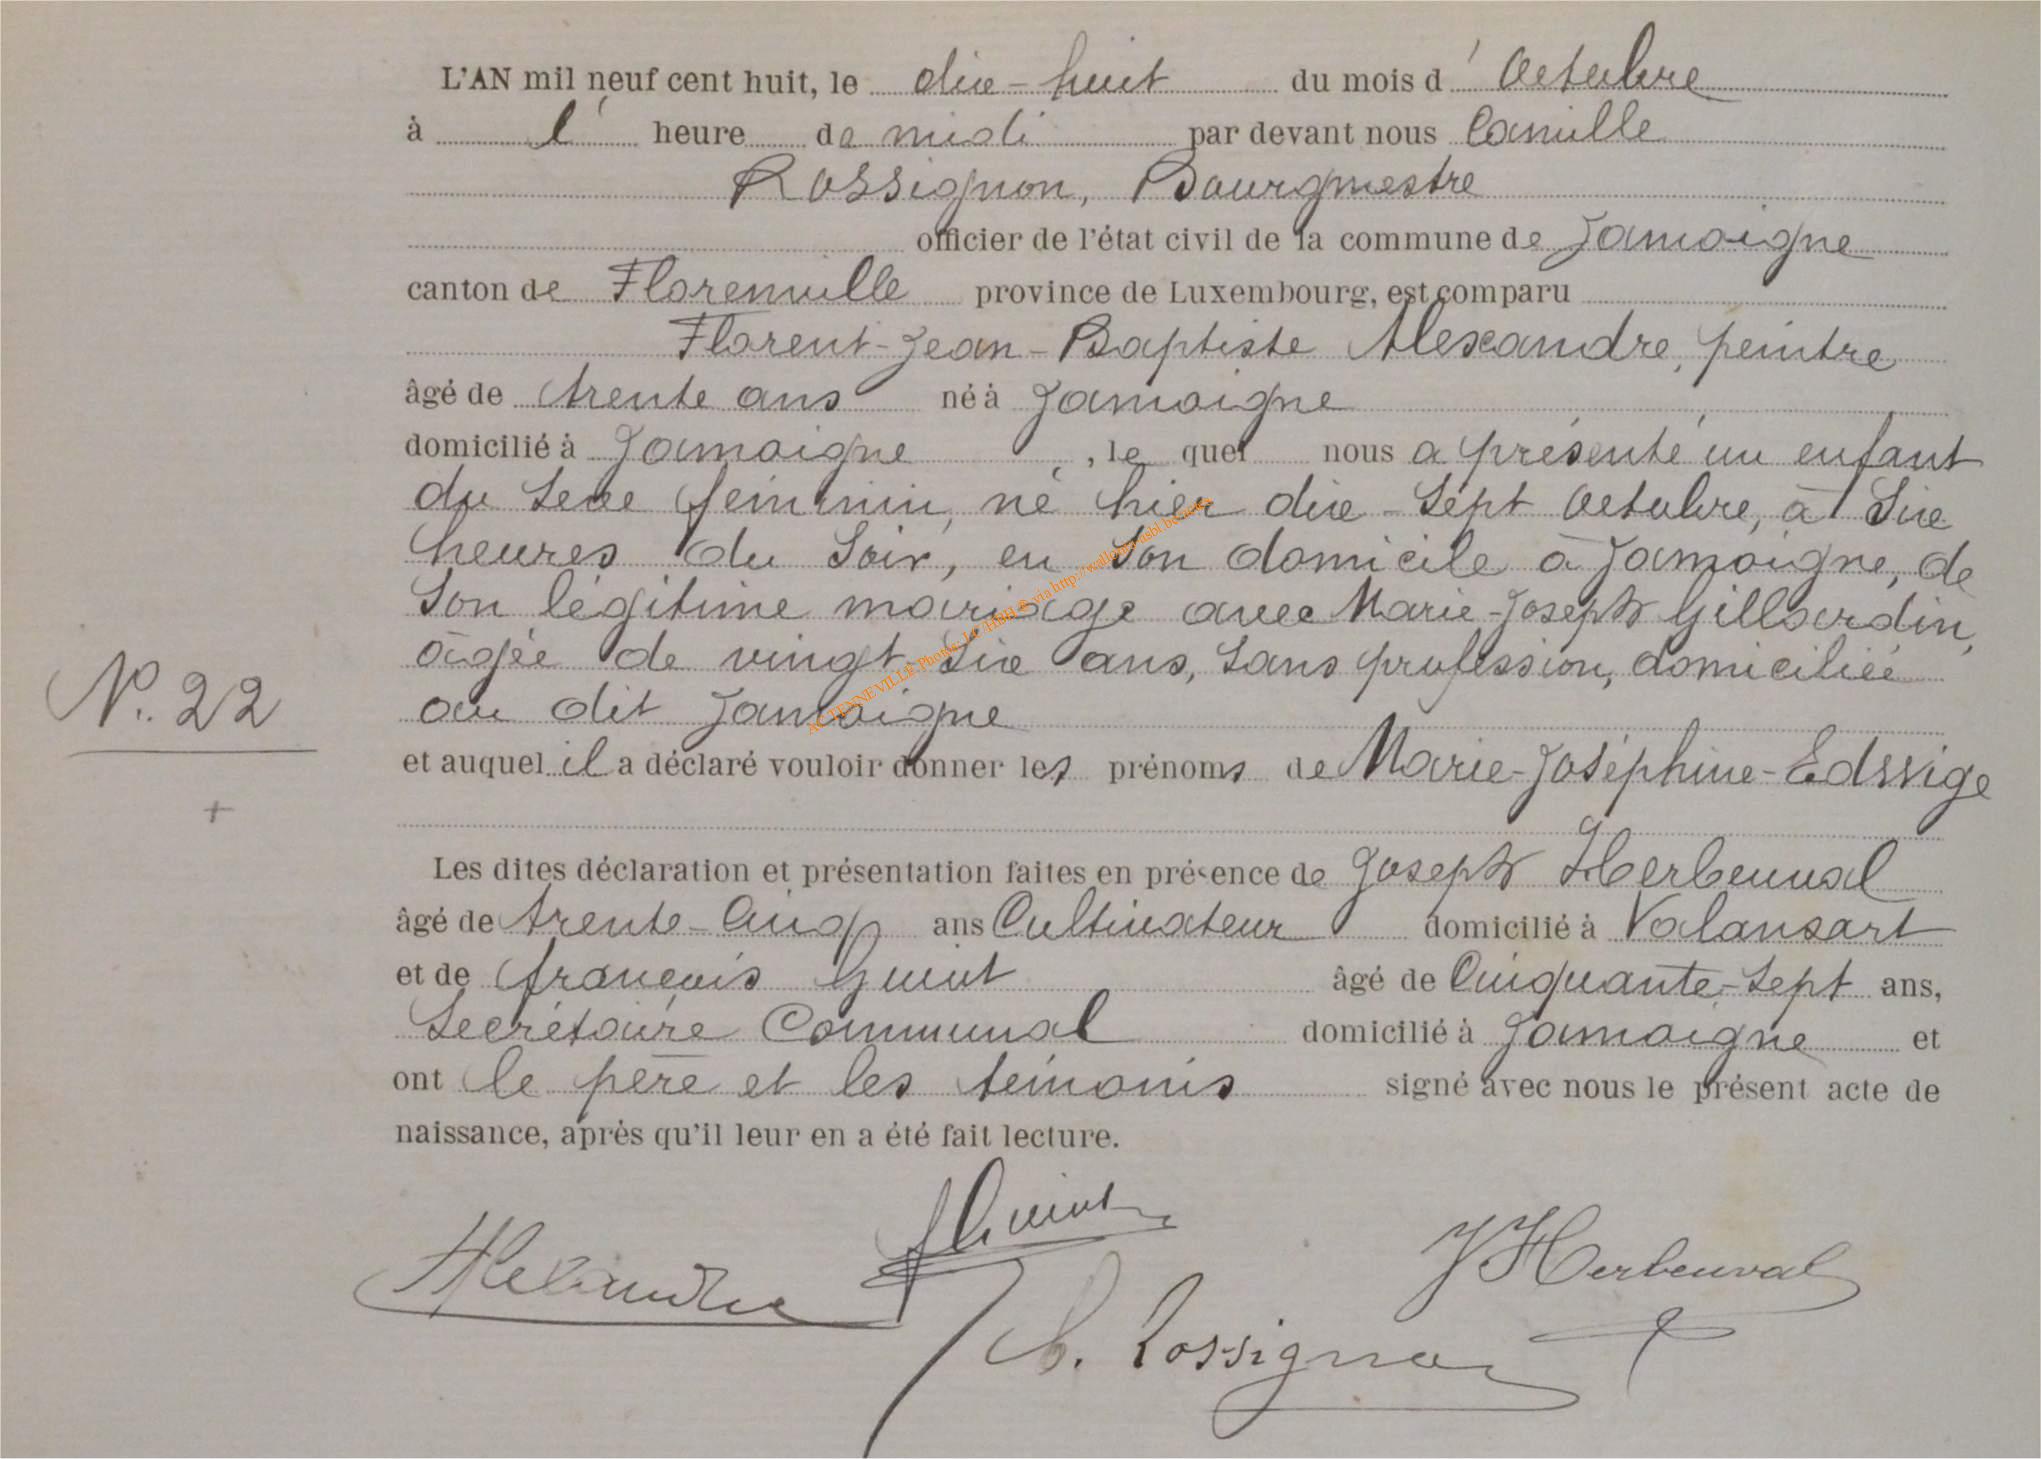 L'AN mil neuf cent huit, le dix-huit du mois d'Octobre
à l' heure de midi par devant nous Camille
Rossignon, Bourgmestre
officier de l'état civil de la commune de Jamoigne
canton de Florenville province de Luxembourg, est comparu
Florent-Jean-Baptiste Alexandre, peintre
âgé de trente ans né à Jamoigne
domicilié à Jamoigne, le quel nous a présenté un enfant
du sexe féminin, né hier dix-sept Octobre, à six
heures du soir, en son domicile à Jamoigne, de
son légitime mariage avec Marie-Joseph Gillardin,
âgée de vingt-six ans, sans profession, domiciliée
N°. 22
au dit Jamoigne
et auquel il a déclaré vouloir donner les prénoms de Marie-Joséphine-Edwige
+
Les dites déclaration et présentation faites en présence de Joseph Herbeuval
âgé de trente-cinq ans Cultivateur domicilié à Valansart
et de françois Guiot âgé de Cinquante-sept ans,
Secrétaire Communal domicilié à Jamoigne et
ont le père et les témoins signé avec nous le présent acte de
naissance, après qu'il leur en a été fait lecture.
Alexandre
JHerbeuval
C. Rossignon